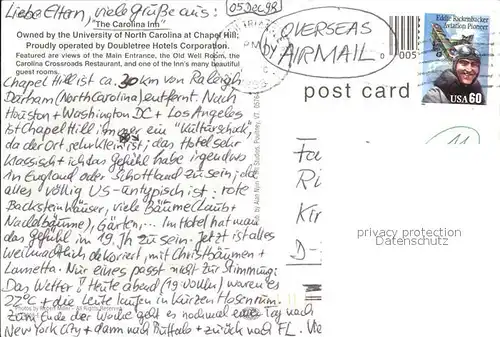 Liebe Eltern, viele Grüße aus:
05.Dec 98
"The Carolina Inn"
Owned by the University of North Carolina at Chapel Hill;
Proudly operated by Doubletree Hotels Corporation.
Featured are views of the Main Entrance, the Old Well Room, the
Carolina Crossroads Restaurant, and one of the Inn's many beautiful
guest rooms.
Chapel Hill ist ca. 30 km von Raleigh
Durham (North Carolina) entfernt. Nach
Houston + Washington DC + Los Angeles
ist Chapel Hill immer ein "Kulturschock",
da der Ort sehr klein ist; das Hotel sehr
klassisch + ich das Gefühl habe irgendwo
in England oder Schottland zu sein, da
alles völlig US-untypisch ist: rote
Backsteinhäuser, viele Bäume (Laub+
Nadelbäume), Gärten, ... Im Hotel hat man
das Gefühl im 19. Jh zu sein. Jetzt ist alles
weihnachtlich dekoriert, mit Christbäumen +
Lametta. Nur eines passt nicht zur Stimmung:
Das Wetter! Heute abend (19 Uhr) waren es
22°C + die Leute laufen in kurzen Hosen rum.
Zum Ende der Woche geht es nochmal einen Tag nach
New York City + dann nach Buffalo + zurück nach FL. Vie
PM
OVERSEAS
by AIRMAIL
0005
post card
Eddie Rickenbacker
Aviation Pioneer
USA 60
11
Fa
Ri
Kir
D-
privacy protection
Datenschutz